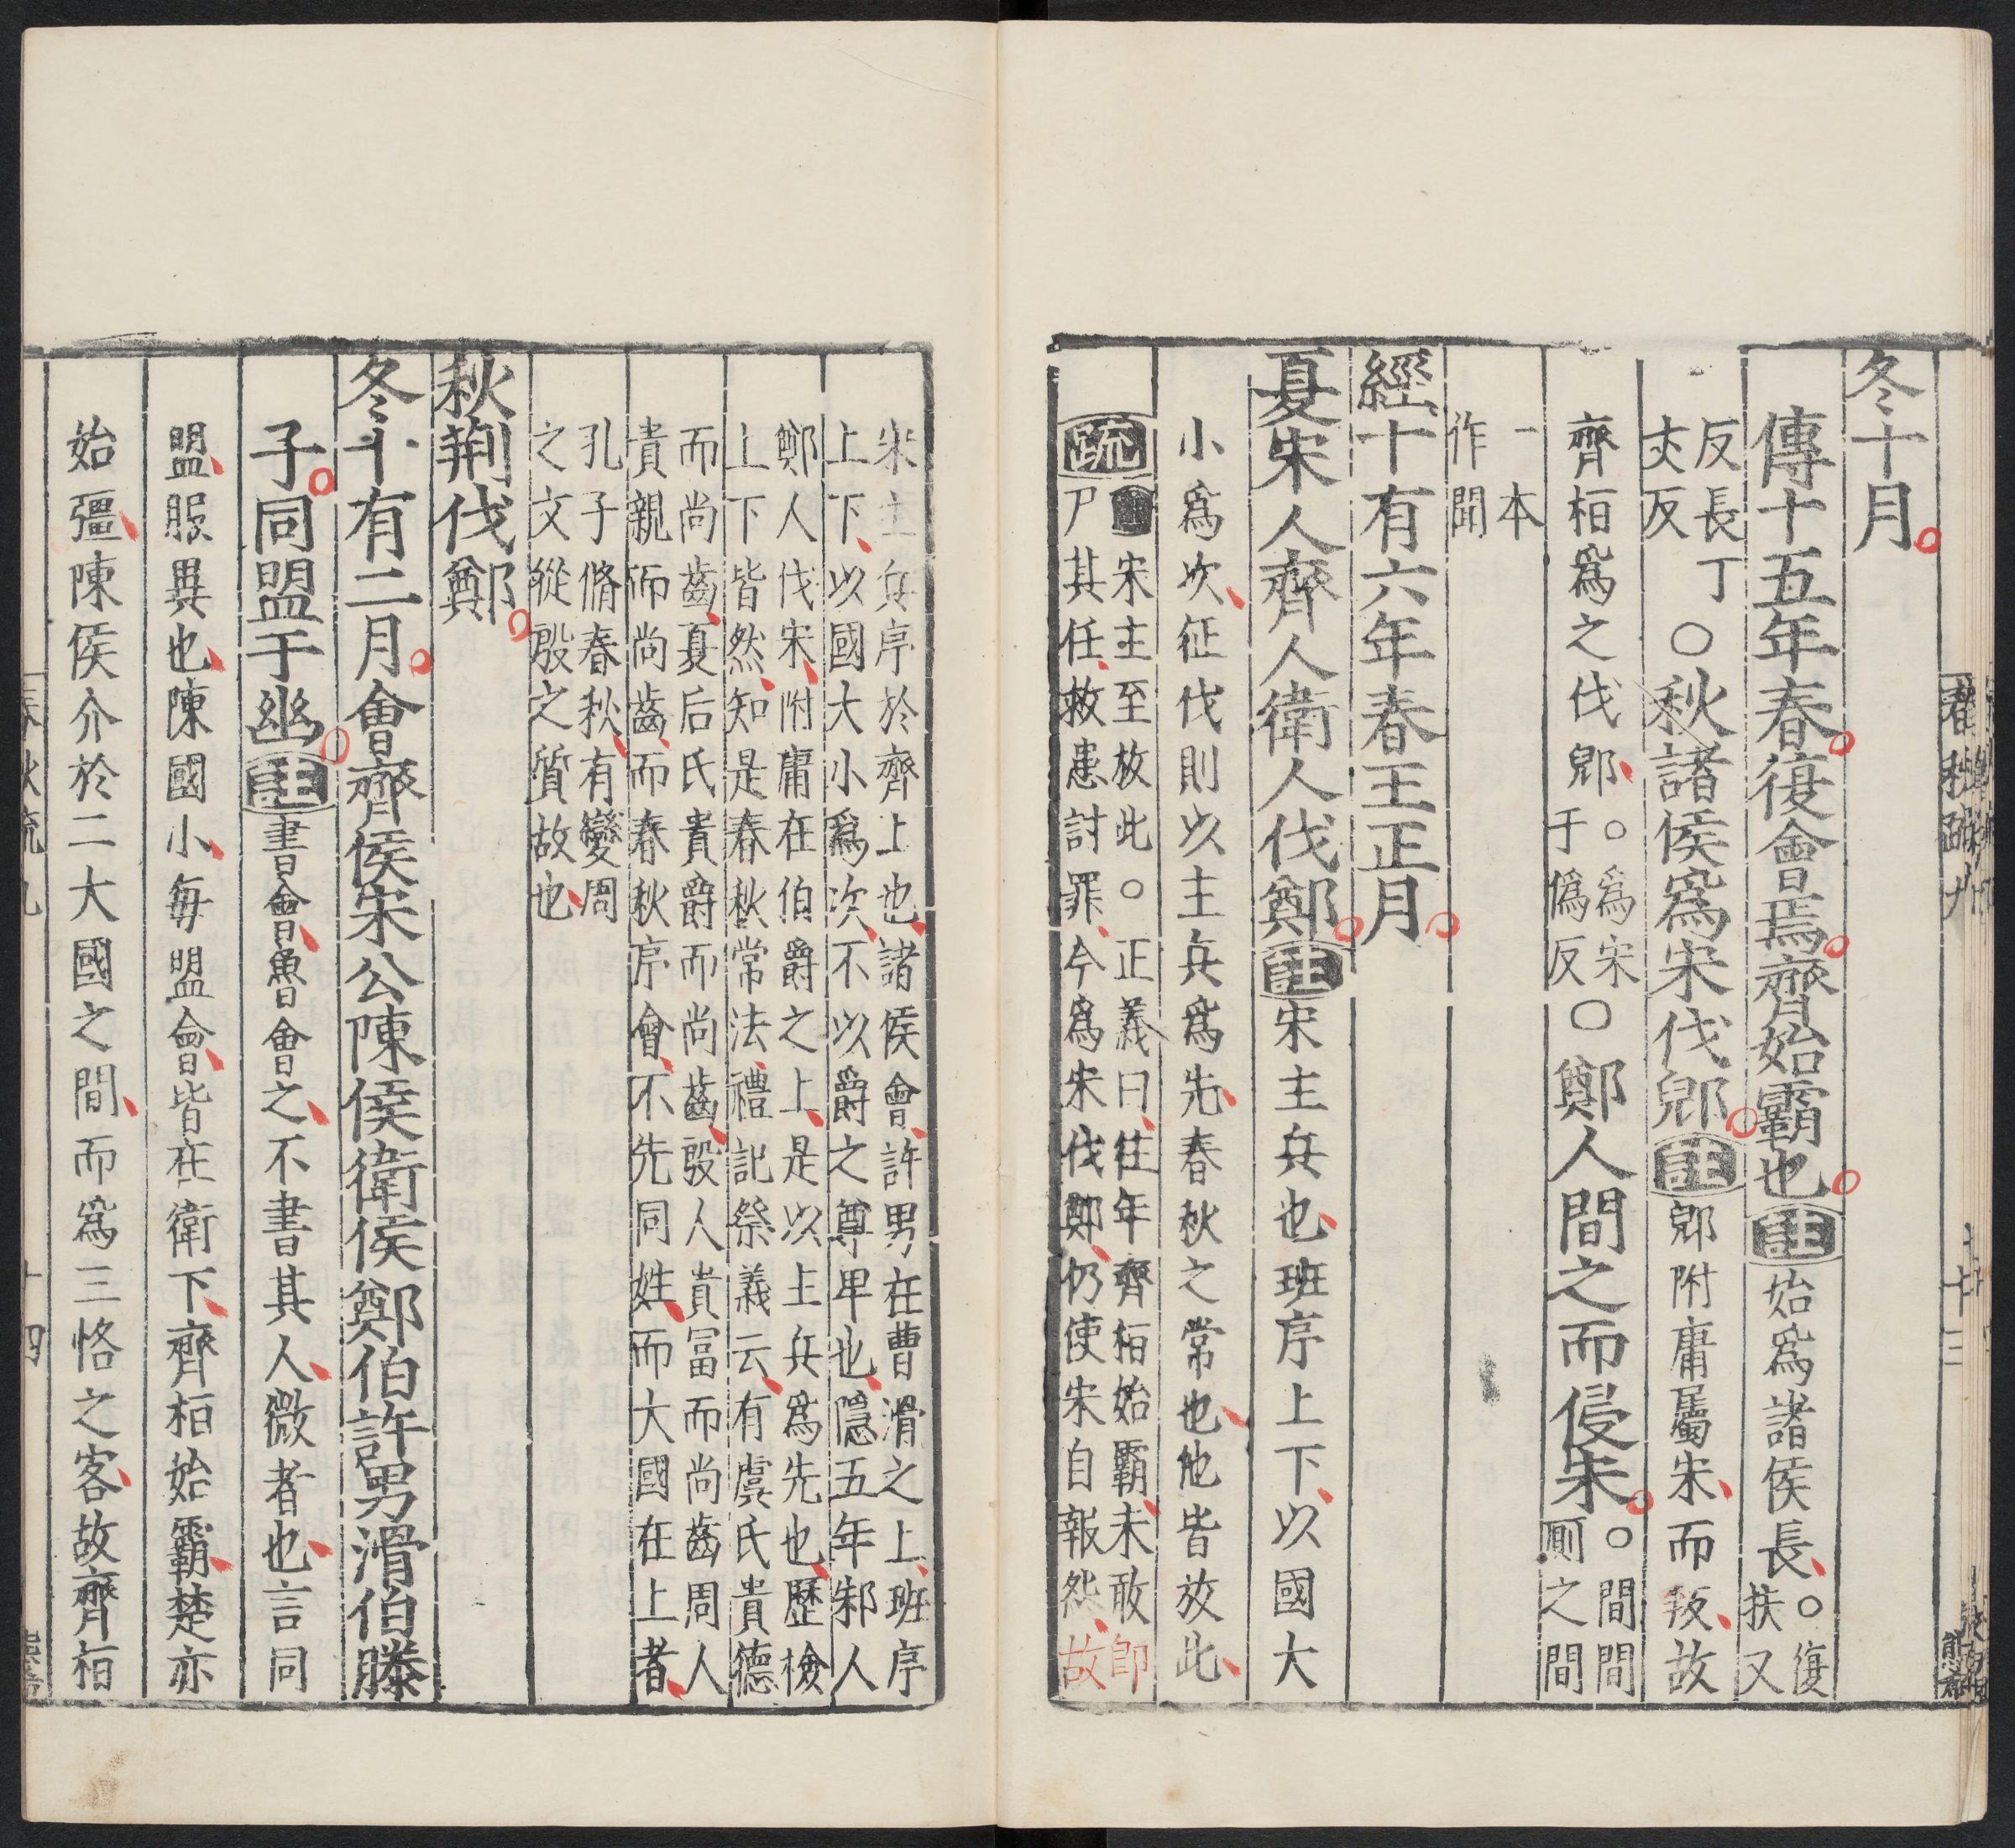 冬十月
傳十五年春復會焉齊始霸也註始爲諸侯長○復扶又
反長丁丈反○秋諸侯爲宋伐郳註郳附庸屬宋而叛故
齊桓爲之伐郳○爲宋于僞反○鄭人間之而侵宋○間間厠之間
一本作聞
經十有六年春王正月
夏宋人齊人衛人伐鄭註宋主兵也班序上下以國大
小爲次征伐則以主兵爲先春秋之常也他皆放此
疏 宋主至放此○正義曰往年齊桓始霸未敢即
尸其任救患討罪今爲宋伐鄭仍使宋自報怨故
宋主兵序於齊上也諸侯會許男在曹滑之上班序
上下以國大小爲次不以爵之尊卑也隱五年邾人
鄭人伐宋附庸在伯爵之上是以主兵爲先也歷檢
上下皆然知是春秋常法禮記祭義云有虞氏貴德
而尚齒夏后氏貴爵而尚齒殷人貴富而尚齒周人
貴親而尚齒而春秋序會不先同姓而大國在上者
孔子脩春秋有變周
之文從殷之質故也
秋荆伐鄭
冬十有二月會齊侯宋公陳侯衛侯鄭伯許男滑伯滕
子同盟于幽註書會魯會之不書其人微者也言同
盟服異也陳國小每盟會皆在衛下齊桓始霸楚亦
始彊陳侯介於二大國之間而爲三恪之客故齊桓
春秋疏九
十三
春秋疏九
十四